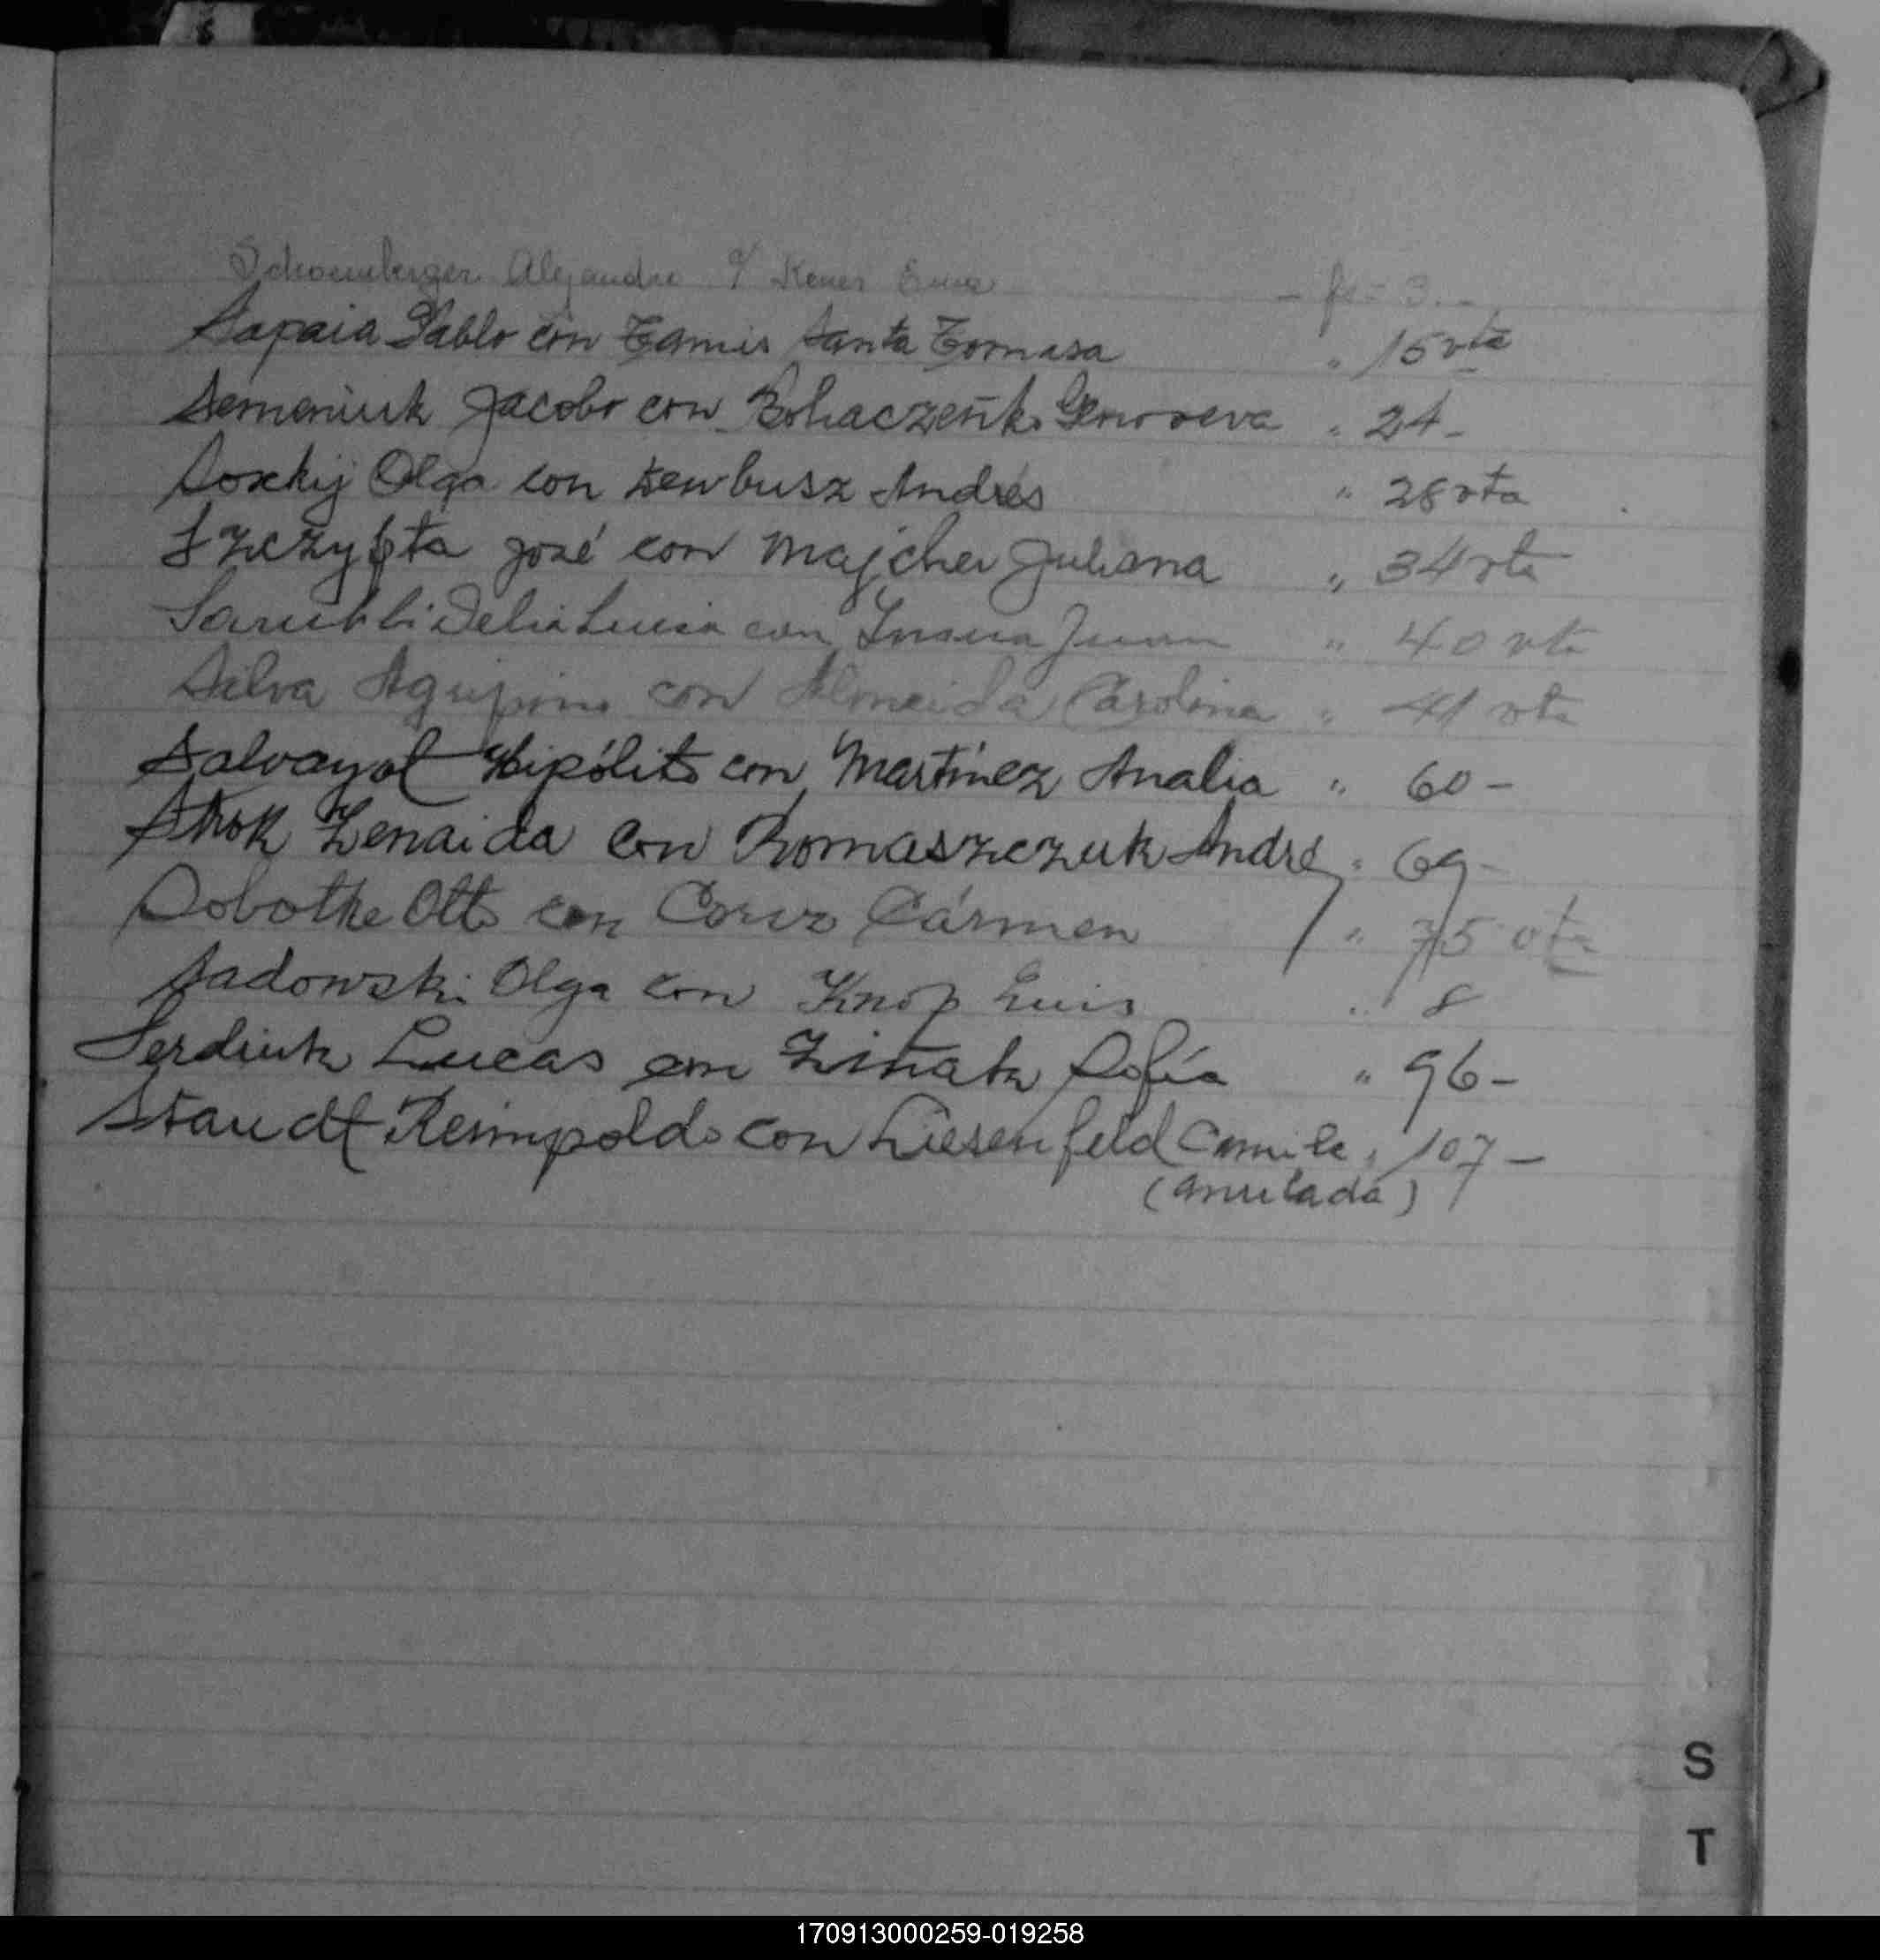 Schoemberger Alejandro c/ Kener Ema - fs= 3.-
Sapaia Pablo con Tamis Santa Tomasa " 15 vta
Semeniuk Jacobo con Bohaczenko Genoveva " 24-
Soxkij Olga con Dewbusz Andrés " 28 vta
Szczypta José con Majcher Juliana " 34 vta
Sarubbi Delia Lucia con Insua Juan " 40 vta
Silva Agripino con Almeida Carolina " 41 vta
Salvayot Hipólito con Martínez Analia " 60-
Shok Zenaida con Romaszczuk Andrés " 69-
Sobothe Otto con Corvo Cármen " 75 vta
Sadowski Olga con Knop Luis " 8
Serdiuk Lucas con Ziñak Sofía " 96-
Staudt Reimpoldo con Liesenfeld Camila " 107-
(anulada)
S
T
170913000259-019258